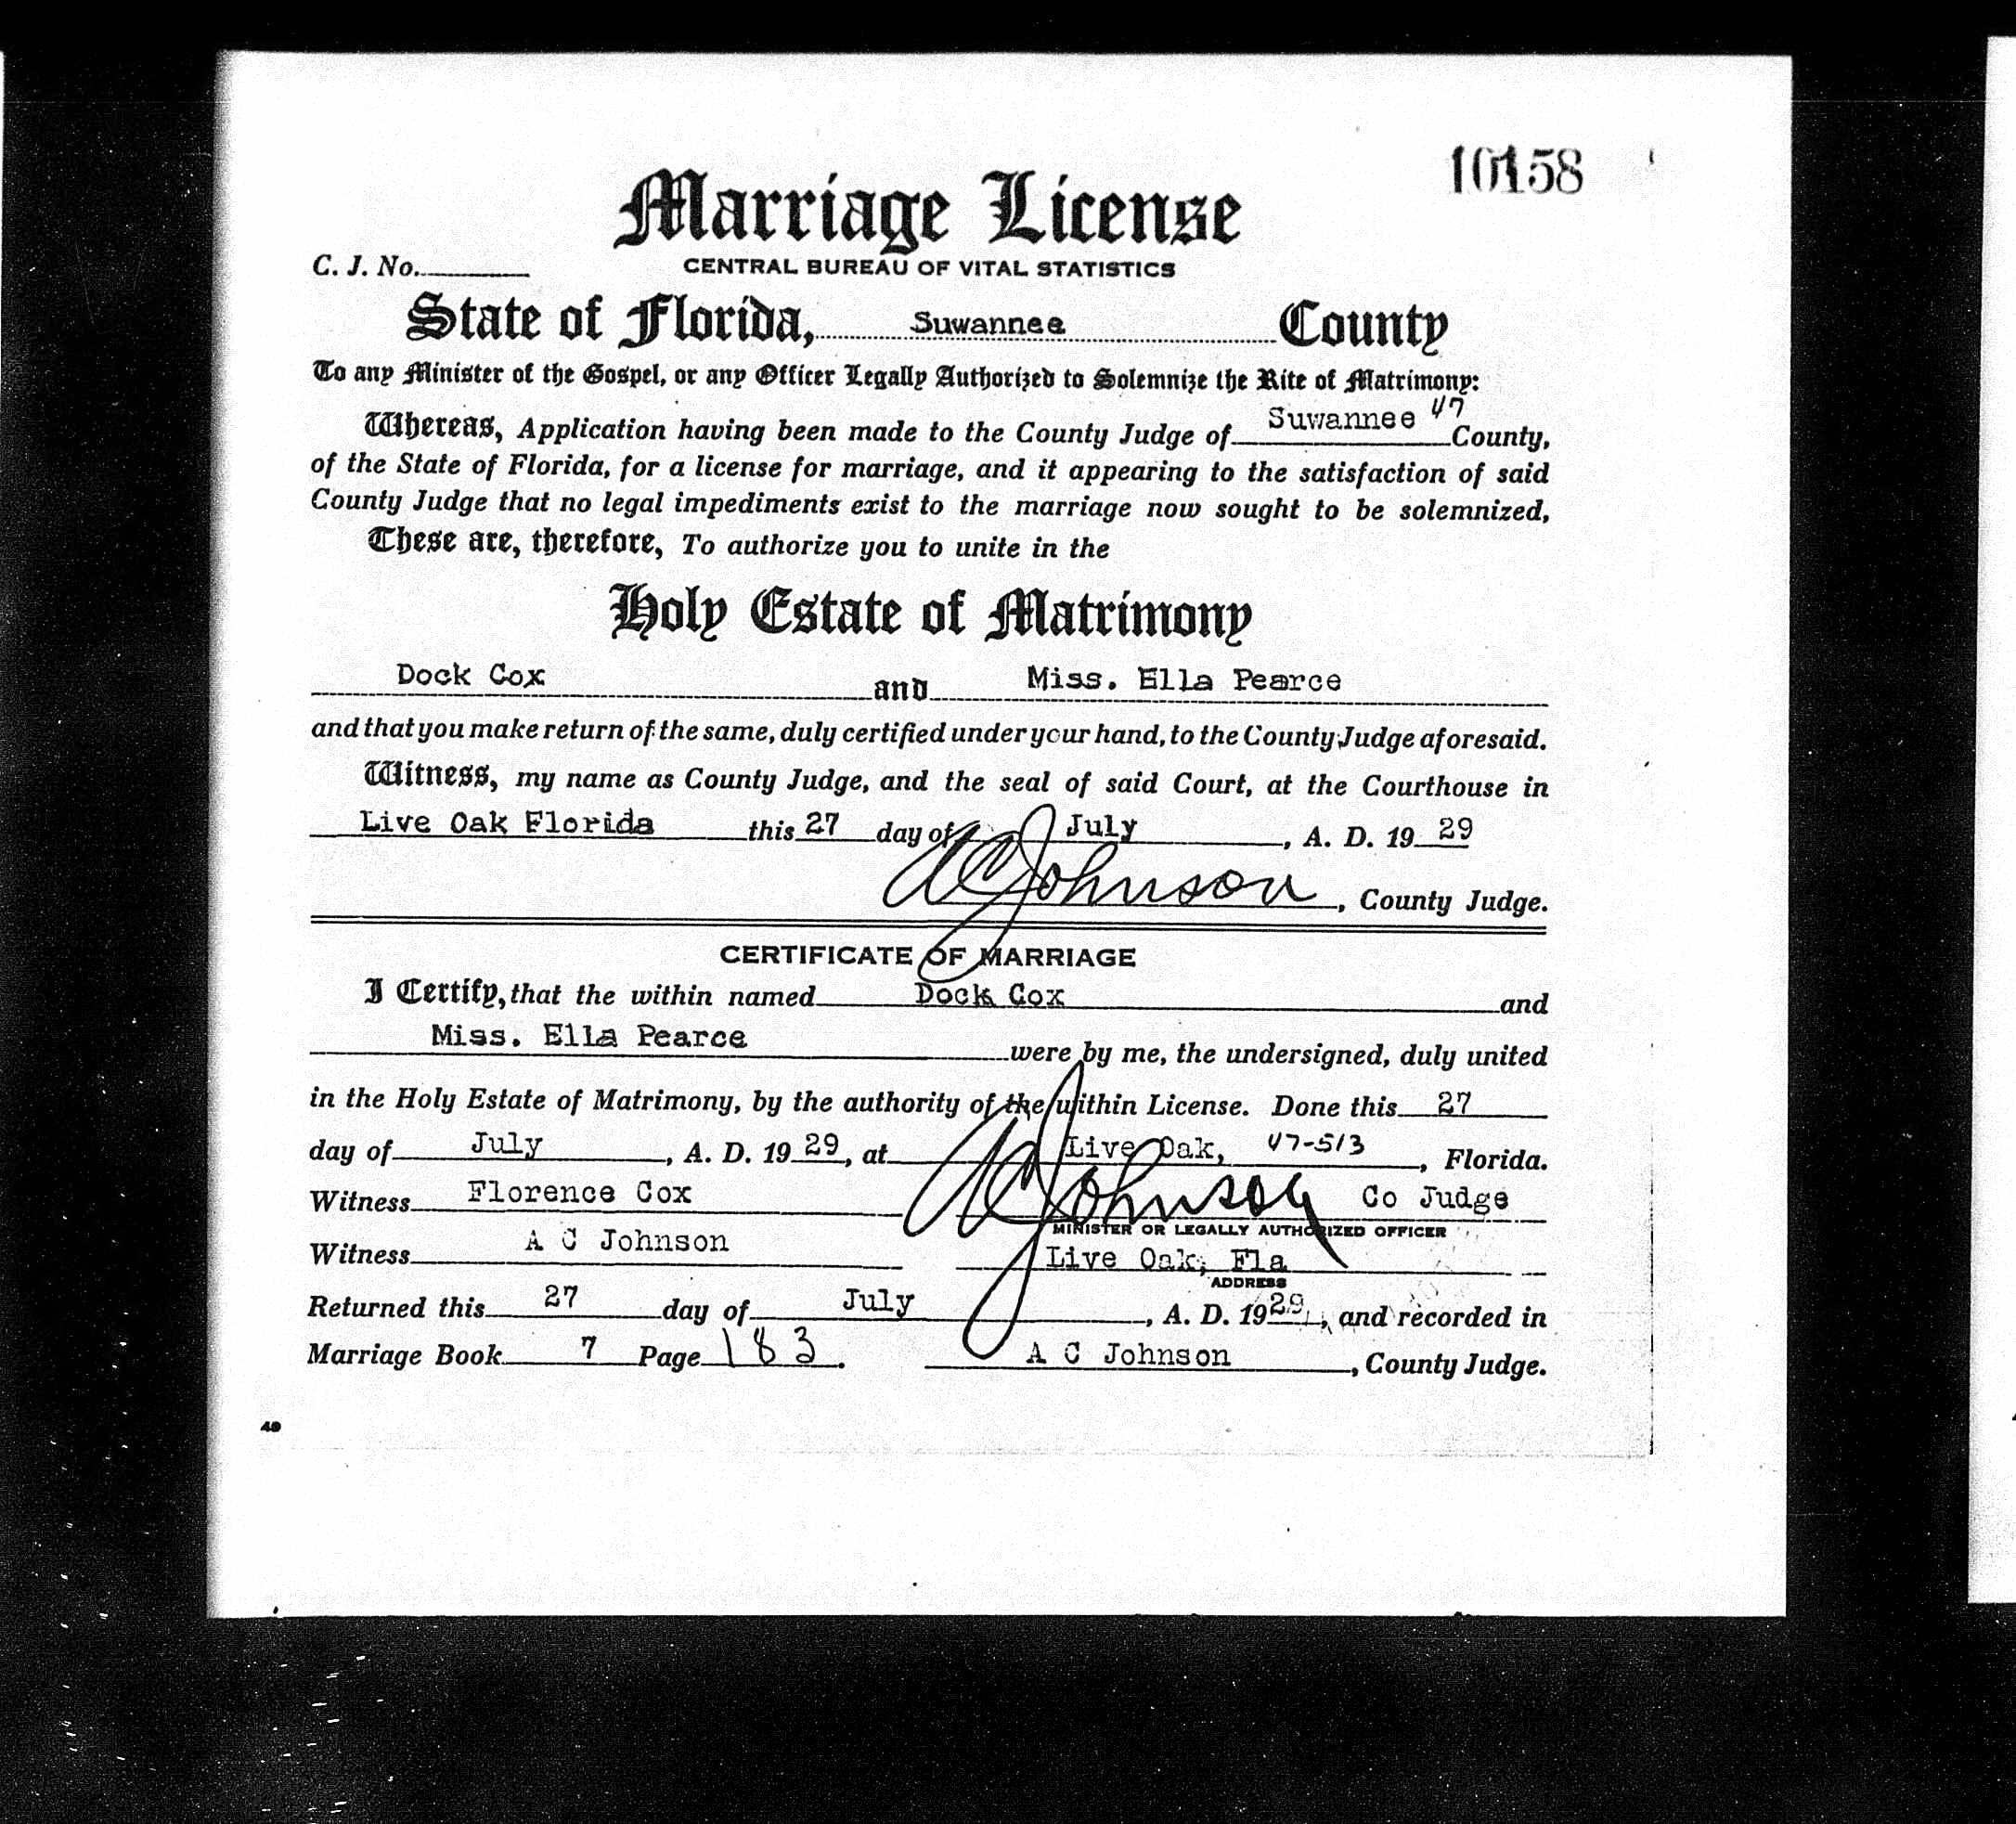 10158
Marriage License
C. J. No.
CENTRAL BUREAU OF VITAL STATISTICS
State of Florida, Suwannee County
To any Minister of the Gospel, or any Officer Legally Authorized to Solemnize the Rite of Matrimony:
Whereas, Application having been made to the County Judge of Suwannee 47 County,
of the State of Florida, for a license for marriage, and it appearing to the satisfaction of said
County Judge that no legal impediments exist to the marriage now sought to be solemnized,
These are, therefore, To authorize you to unite in the
Holy Estate of Matrimony
Dock Cox and Miss. Ella Pearce
and that you make return of the same, duly certified under your hand, to the County Judge aforesaid.
Witness, my name as County Judge, and the seal of said Court, at the Courthouse in
Live Oak Florida this 27 day of July, A. D. 19 29
A C Johnson, County Judge.
CERTIFICATE OF MARRIAGE
I Certify, that the within named Dock Cox and
Miss. Ella Pearce were by me, the undersigned, duly united
in the Holy Estate of Matrimony, by the authority of the within License. Done this 27
day of July, A. D. 19 29, at Live Oak, 47-513, Florida.
Witness Florence Cox A C Johnson Co Judge
MINISTER OR LEGALLY AUTHORIZED OFFICER
Witness A C Johnson Live Oak, Fla
ADDRESS
Returned this 27 day of July, A. D. 19 29, and recorded in
Marriage Book 7 Page 183. A C Johnson, County Judge.
49